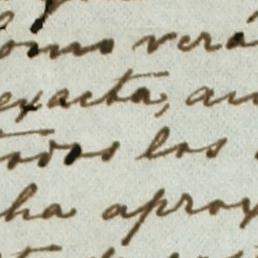 como verá
exacta, au
todos los
ha aprox